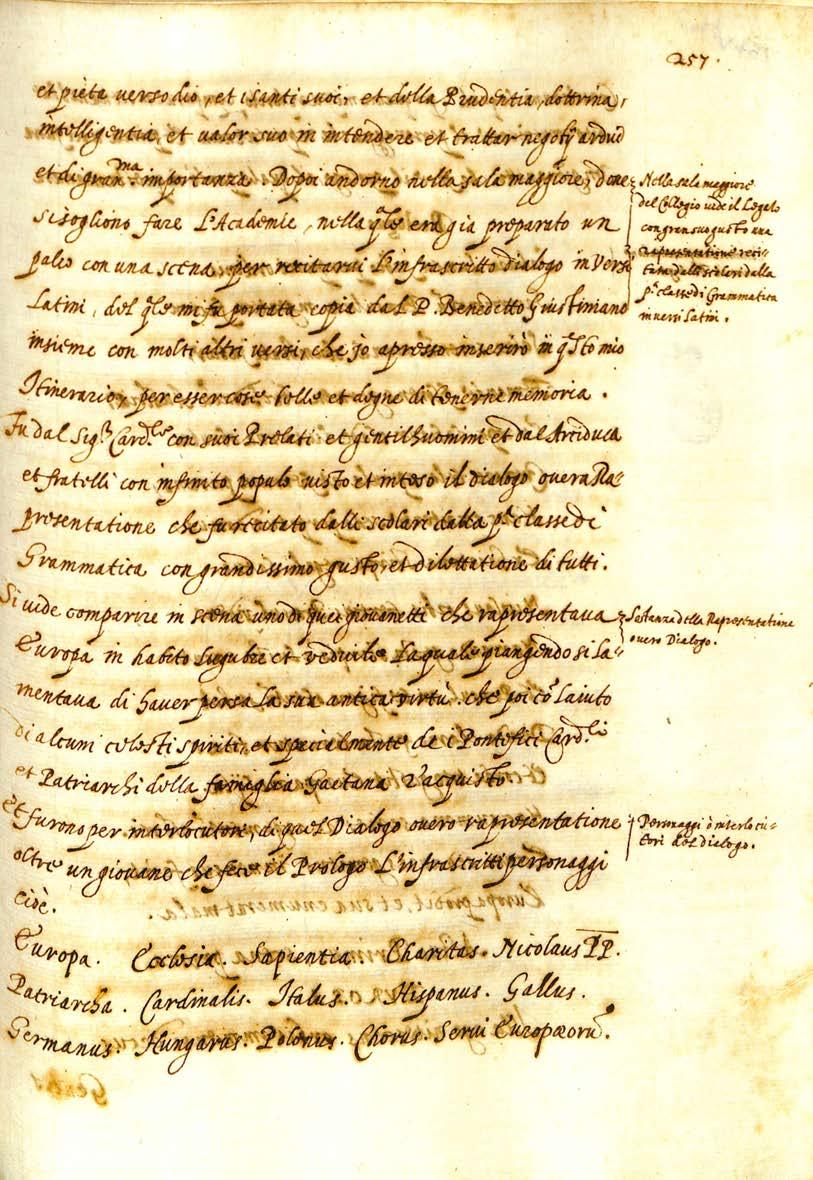 257.
et pieta verso dio, et i santi suoi, et della Prudentia, dottrina,
intelligentia, et valor suo in intendere et trattar negotij ardui
et di gran.ma importanza. Dopoi andorno nella sala maggiore, doue
si sogliono fare l'Academie, nella qle era gia preparato un
palco con una scena, per recitarui l'infrascritto dialogo in versi
Latini, del qle mi fu portata copia dal P. Benedetto Giustiniano
insieme con molti altri uersi, che jo apresso inserirò in qsto mio
Itinerario, per esser cose belle et degne di tenerne memoria.
Fu dal Sigr. Card.le con suoi Prelati et gentilhuomini et dal Arciduca
et fratelli con infinito populo visto et inteso il dialogo overa Ra-
presentatione che fu recitato dalli scolari dalla pa classe di
Grammatica con grandissimo gusto, et dilettatione di tutti.
Si uide comparire in scena uno di quei giouanetti che rapresentaua
Europa in habito lugubre et vedovile la quale piangendo si la-
mentaua di hauer persa la sua antica virtù. che poi cõ l'aiuto
di alcuni celesti spiriti, et specialmente de i Pontefici Card.li
et Patriarchi della famiglia Gaetana racquistò
et furono per interlocutori, di qael Dialogo ouero rapresentatione
oltre un giouane che fece il Prologo l'infrascritti personaggi
cioè.
Europa. Ecclesia. Sapientia. Charitas. Nicolaus PP.
Patriarcha. Cardinalis. Italus. Hispanus. Gallus.
Germanus. Hungarus. Polonus. Chorus. Serui Europæorũ.
Nella sala maggiore
del Collegio uide il Legato
con gran suo gusto una
rapresentatione reci-
tata dalli scolari dalla
pa classe di Grammatica
in uersi Latini.
Sostanza della Rapresentatione
ouero Dialogo.
Personaggi ò interlocu-
tori del dialogo.